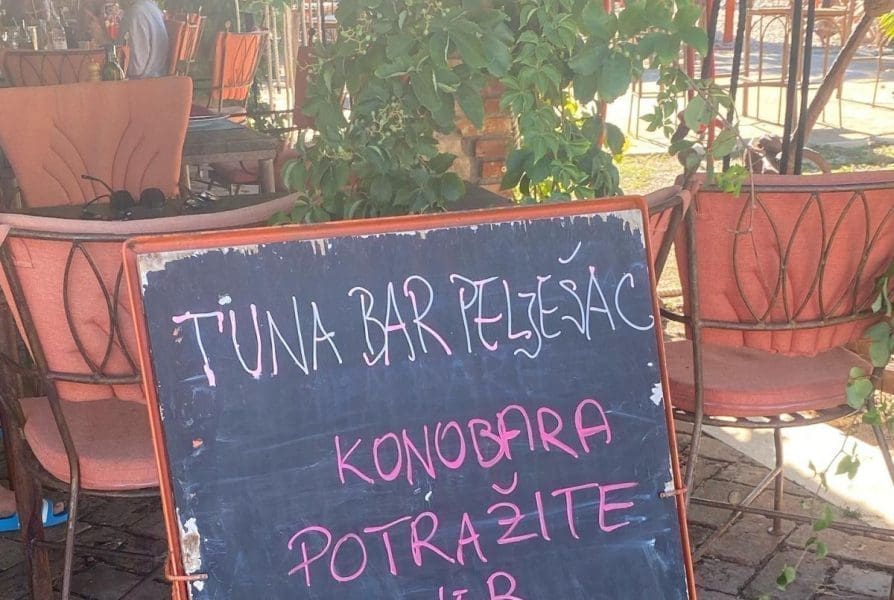 TUNA BAR PELJEŠAC
KONOBARA
POTRAŽITE